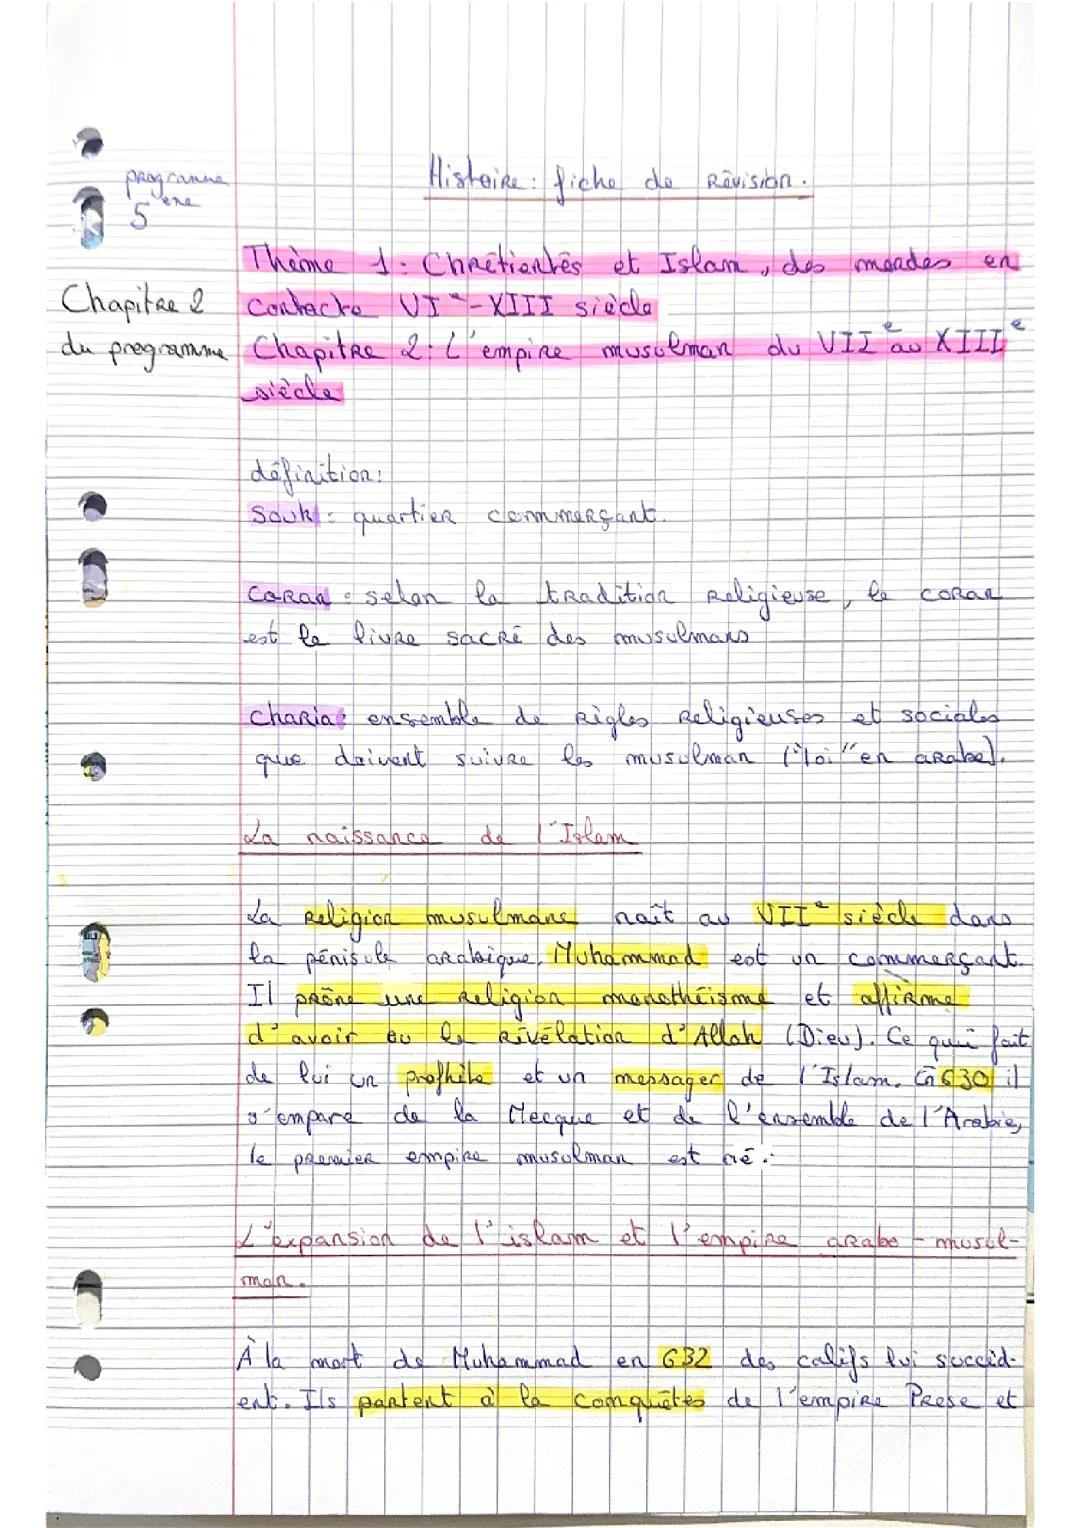 Histoire : fiche de Révision.
programme
5 ème
Thème 1 : Chrétientés et Islam, des mondes en
Chapitre 2
contacte VIe - XIII siècle
du programme
Chapitre 2 : L'empire musulman du VIIe au XIIIe
siècle
définition :
Souk : quartier commerçant.
Coran : selon la tradition Religieuse, le coran
est le livre sacré des musulmans
Charia : ensemble de Règles Religieuses et sociales
que doivent suivre les musulman ("loi" en arabe).
La naissance de l'Islam
La Religion musulmane naît au VIIe siècle dans
la pénisule arabique, Muhammad est un commerçant.
Il prône une religion monothéisme et affirme
d'avoir eu la Révélation d'Allah (Dieu). Ce qui fait
de lui un prophète et un messager de l'Islam. En 630 il
s'empare de la Mecque et de l'ensemble de l'Arabie,
le premier empire musulman est né.
L'expansion de l'islam et l'empire arabo-musul-
man.
À la mort de Muhammad en 632 des califs lui succèd-
ent. Ils partent à la conquêtes de l'empire Prese et